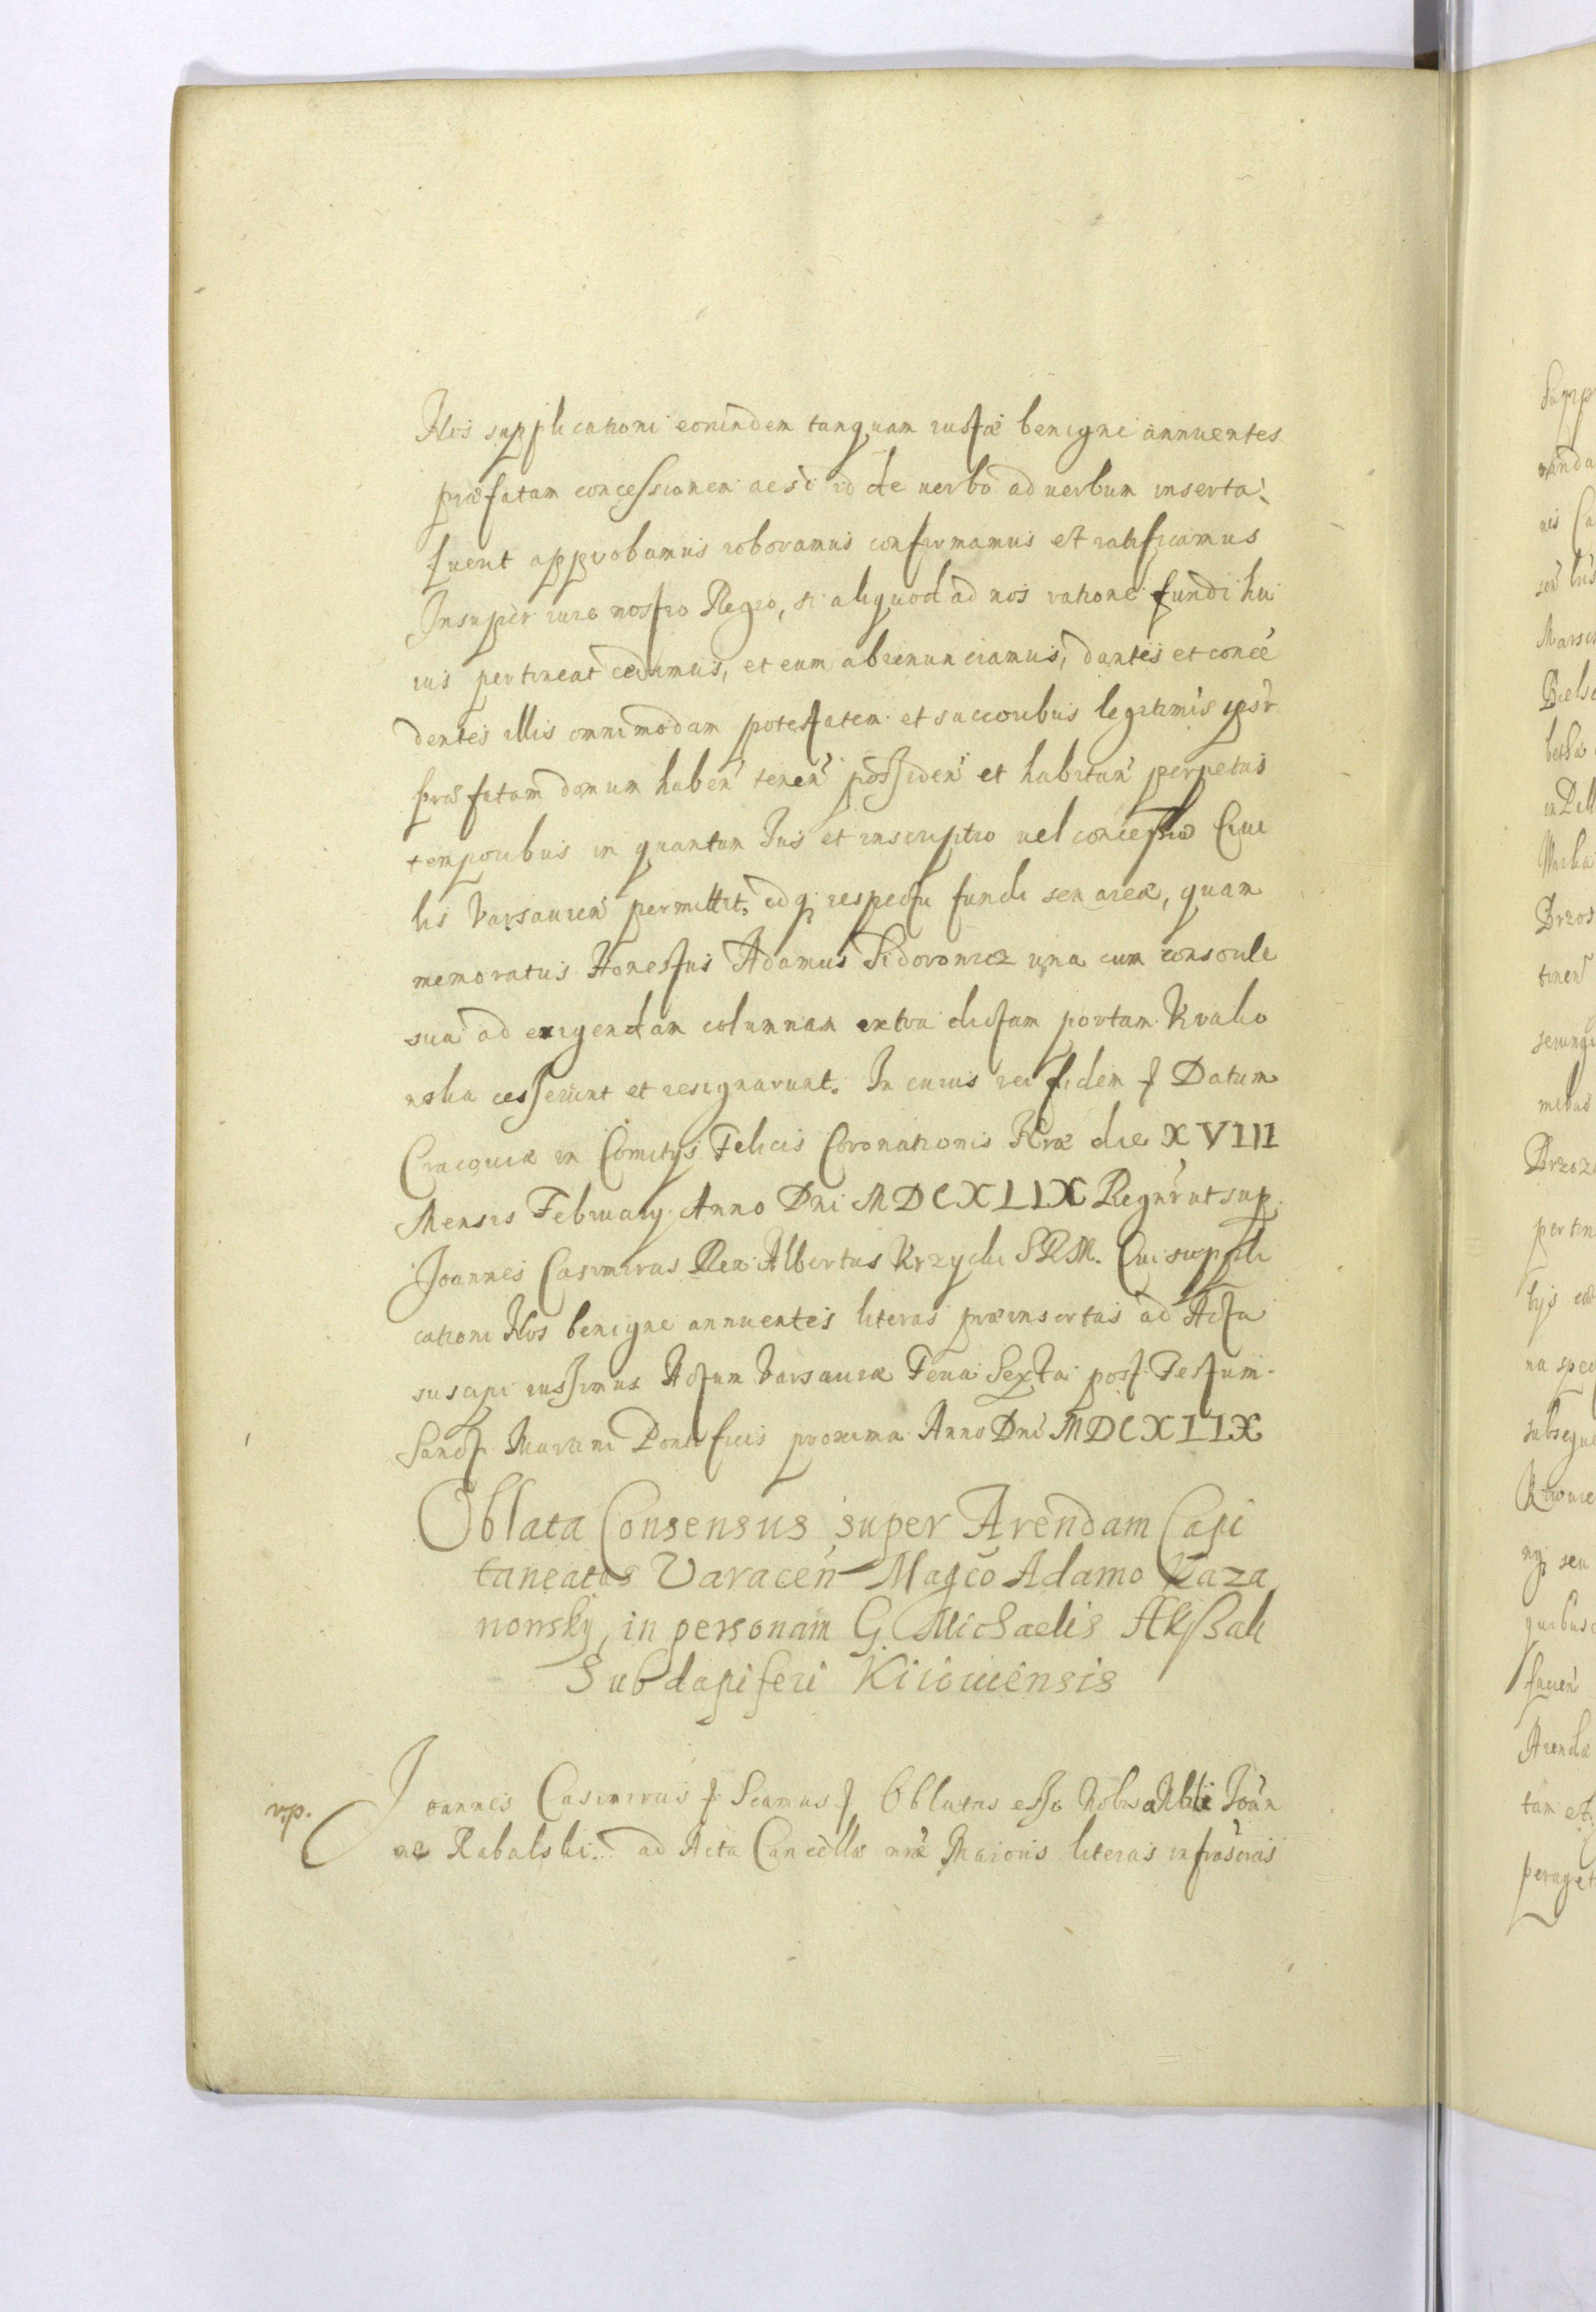 Nos supplicationi eorundem tanquam iustæ benigne annuentes
præfatam concessionem acsi id de uerbo ad uerbum inserta
fuerit approbamus roboramus confirmamus et ratificamus
Insuper iure nostro Regio, si aliquod ad nos ratione fundi hu
ius pertineat cedimus, et eum abrenunciamus, dantes et conce
dentes illis omnimodam potestatem et succoribus legitimis ipsor
præfatam domum haben tenen possiden et habitan perpetuis
temporibus in quantum Ius et inscriptio uel concessio Ciui
lis Varsauien permittit, idq respectu fundi seu areæ, quam
memoratus Honestus Adamus Sidorowicz una cum consorte
sua ad erigendam columnam extra dictam portam Krako
wska cesserunt et resignarunt. In cuius rei fidem Datum
Cracouiæ in Comitys Felicis Coronationis Nræ die XVIII
Mensis February Anno Dni MDCXLIX Regnr ut sup.
Joannes Casimirus Rex Albertus Krzycki SRM. Cui suppli
cationi Nos benigne annuentes literas præinsertas ad Acta
suscipi iussimus Actum Varsauiæ Feria Sexta post Festum
Sanct Martini Pontificis proxima Anno Dni MDCXLIX
Oblata Consensus super Arendam Capi
taneatus Varacen Magco Adamo Kaza
nowsky, in personam G. Michaelis Akssak
Subdapiferi Kiiouiensis
Joannes Casimirus Seamus Oblatas esse Nobis a Nbli Joan
ne Rabalski ad Acta Cancellæ nræ Maioris literas infrascras